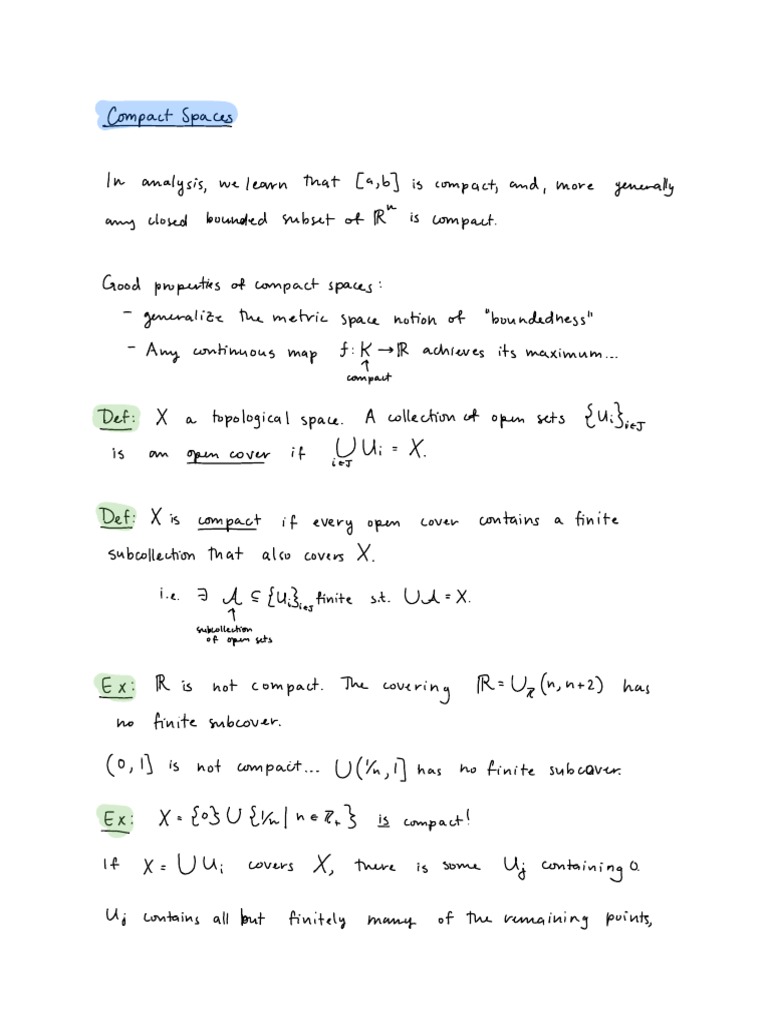 Compact Spaces
In analysis, we learn that [a,b] is compact, and, more generally
any closed bounded subset of ℝⁿ is compact.
Good properties of compact spaces:
- generalize the metric space notion of "boundedness"
- Any continuous map f: K → ℝ achieves its maximum...
↑
compact
Def: X a topological space. A collection of open sets {Uᵢ}ᵢ∈J
is an open cover if ⋃ᵢ∈J Uᵢ = X.
Def: X is compact if every open cover contains a finite
subcollection that also covers X.
i.e. ∃ 𝒜 ⊆ {Uᵢ}ᵢ∈J finite s.t. ⋃𝒜 = X.
↑
subcollection
of open sets
Ex: ℝ is not compact. The covering ℝ = ⋃_ℤ (n, n+2) has
no finite subcover.
(0,1] is not compact... ⋃(1/n, 1] has no finite subcover.
Ex: X = {0} ∪ {1/n | n ∈ ℤ₊} is compact!
If X = ⋃Uᵢ covers X, there is some Uⱼ containing 0.
Uⱼ contains all but finitely many of the remaining points,